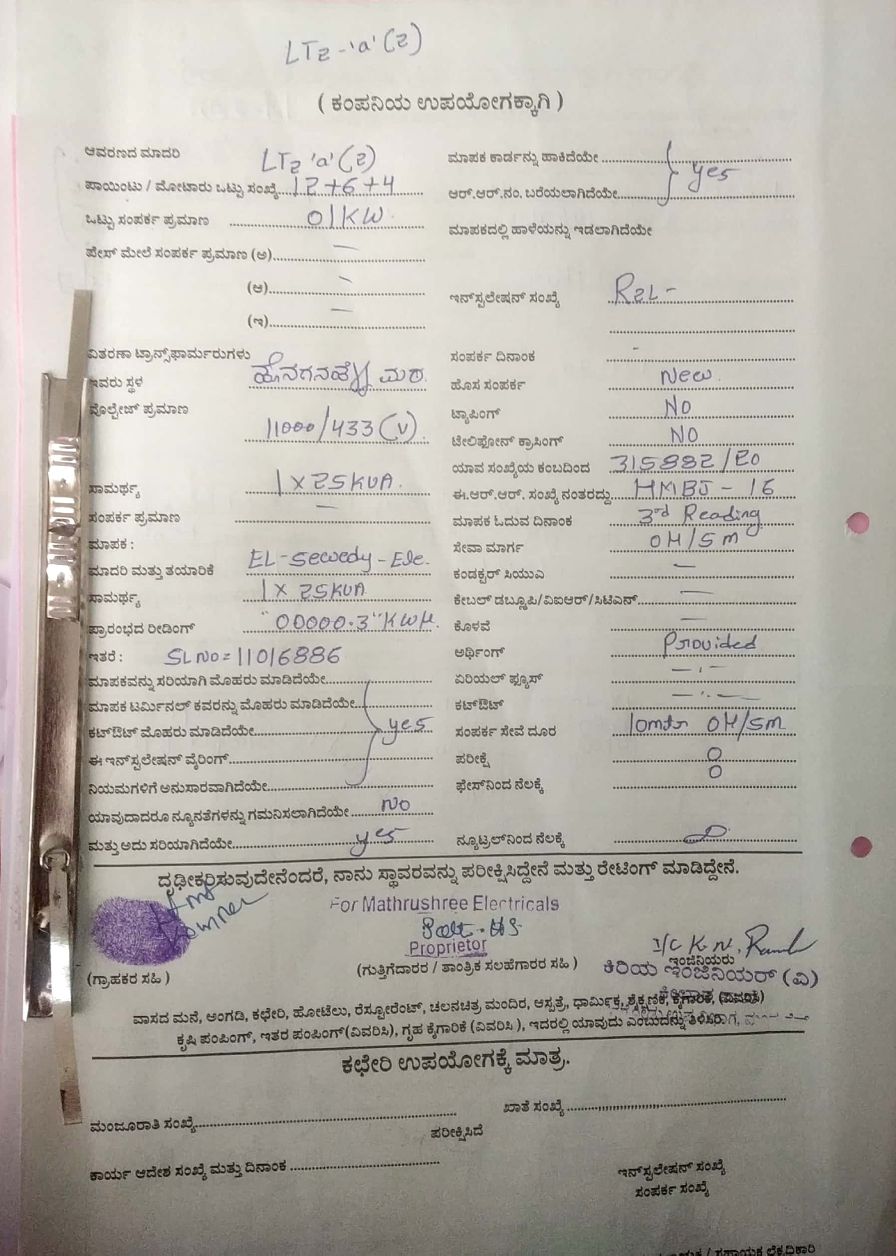 LT2-'a'(2)
( ಕಂಪನಿಯ ಉಪಯೋಗಕ್ಕಾಗಿ )
ಆವರಣದ ಮಾದರಿ LT2 'a'(2)
ಪಾಯಿಂಟು / ಮೋಟಾರು ಒಟ್ಟು ಸಂಖ್ಯೆ 12+6+4
ಒಟ್ಟು ಸಂಪರ್ಕ ಪ್ರಮಾಣ 01KW
ಫೇಸ್ ಮೇಲೆ ಸಂಪರ್ಕ ಪ್ರಮಾಣ (ಅ) —
(ಆ) —
(ಇ) —
ವಿತರಣಾ ಟ್ರಾನ್ಸ್‌ಫಾರ್ಮರುಗಳು
ಇವರು ಸ್ಥಳ ಮಠ.
ವೋಲ್ಟೇಜ್ ಪ್ರಮಾಣ
11000/433(V).
ಸಾಮರ್ಥ್ಯ 1 X 25KVA.
ಸಂಪರ್ಕ ಪ್ರಮಾಣ —
ಮಾಪಕ :
ಮಾದರಿ ಮತ್ತು ತಯಾರಿಕೆ EL-
ಸಾಮರ್ಥ್ಯ 1 X 25KVA
ಪ್ರಾರಂಭದ ರೀಡಿಂಗ್ "00000.3" KWH.
ಇತರೆ : SL NO = 11016886
ಮಾಪಕವನ್ನು ಸರಿಯಾಗಿ ಮೊಹರು ಮಾಡಿದೆಯೇ
ಮಾಪಕ ಟರ್ಮಿನಲ್ ಕವರನ್ನು ಮೊಹರು ಮಾಡಿದೆಯೇ
ಕಟ್‌ಔಟ್ ಮೊಹರು ಮಾಡಿದೆಯೇ yes
ಈ ಇನ್‌ಸ್ಟಲೇಷನ್ ವೈರಿಂಗ್
ನಿಯಮಗಳಿಗೆ ಅನುಸಾರವಾಗಿದೆಯೇ
ಯಾವುದಾದರೂ ನ್ಯೂನತೆಗಳನ್ನು ಗಮನಿಸಲಾಗಿದೆಯೇ No
ಮತ್ತು ಅದು ಸರಿಯಾಗಿದೆಯೇ yes
ಮಾಪಕ ಕಾರ್ಡನ್ನು ಹಾಕಿದೆಯೇ
yes
ಆರ್.ಆರ್.ನಂ. ಬರೆಯಲಾಗಿದೆಯೇ
ಮಾಪಕದಲ್ಲಿ ಹಾಳೆಯನ್ನು ಇಡಲಾಗಿದೆಯೇ
ಇನ್‌ಸ್ಟಲೇಷನ್ ಸಂಖ್ಯೆ R2L-
ಸಂಪರ್ಕ ದಿನಾಂಕ -
ಹೊಸ ಸಂಪರ್ಕ New
ಟ್ಯಾಪಿಂಗ್ NO
ಟೇಲಿಫೋನ್ ಕ್ರಾಸಿಂಗ್ NO
ಯಾವ ಸಂಖ್ಯೆಯ ಕಂಬದಿಂದ 315882/20
ಈ.ಆರ್.ಆರ್. ಸಂಖ್ಯೆ ನಂತರದ್ದು HMBJ-16
ಮಾಪಕ ಓದುವ ದಿನಾಂಕ 3rd Reading
ಸೇವಾ ಮಾರ್ಗ OH/SM
ಕಂಡಕ್ಟರ್ ಸಿಯುಎ —
ಕೇಬಲ್ ಡಬ್ಲೂಪಿ/ವಿಐಆರ್/ಸಿಟಿಎಸ್ —
ಕೊಳವೆ —
ಅರ್ಥಿಂಗ್ Provided
ಏರಿಯಲ್ ಫ್ಯೂಸ್ —
ಕಟ್‌ಔಟ್ —
ಸಂಪರ್ಕ ಸೇವೆ ದೂರ 10mtr OH/SM
ಪರೀಕ್ಷೆ 0
ಫೇಸ್‌ನಿಂದ ನೆಲಕ್ಕೆ 0
ನ್ಯೂಟ್ರಲ್‌ನಿಂದ ನೆಲಕ್ಕೆ
ದೃಢೀಕರಿಸುವುದೇನೆಂದರೆ, ನಾನು ಸ್ಥಾವರವನ್ನು ಪರೀಕ್ಷಿಸಿದ್ದೇನೆ ಮತ್ತು ರೇಟಿಂಗ್ ಮಾಡಿದ್ದೇನೆ.
For Mathrushree Electricals
Proprietor
I/C K. N.
ಇಂಜಿನಿಯರು
(ಗ್ರಾಹಕರ ಸಹಿ )
(ಗುತ್ತಿಗೆದಾರರ / ತಾಂತ್ರಿಕ ಸಲಹೆಗಾರರ ಸಹಿ )
ಕಿರಿಯ ಇಂಜಿನಿಯರ್ (ವಿ)
ವಾಸದ ಮನೆ, ಅಂಗಡಿ, ಕಛೇರಿ, ಹೋಟೆಲು, ರೆಸ್ಟೋರೆಂಟ್, ಚಲನಚಿತ್ರ ಮಂದಿರ, ಆಸ್ಪತ್ರೆ, ಧಾರ್ಮಿಕ, ಶೈಕ್ಷಣಿಕ, ಕೈಗಾರಿಕೆ, (ವಿವರಿಸಿ)
ಕೃಷಿ ಪಂಪಿಂಗ್, ಇತರ ಪಂಪಿಂಗ್(ವಿವರಿಸಿ), ಗೃಹ ಕೈಗಾರಿಕೆ (ವಿವರಿಸಿ ), ಇದರಲ್ಲಿ ಯಾವುದು ಎಂಬುದನ್ನು ತಿಳಿಸಿರಿ
ಕಛೇರಿ ಉಪಯೋಗಕ್ಕೆ ಮಾತ್ರ.
ಮಂಜೂರಾತಿ ಸಂಖ್ಯೆ
ಖಾತೆ ಸಂಖ್ಯೆ
ಪರೀಕ್ಷಿಸಿದೆ
ಕಾರ್ಯ ಆದೇಶ ಸಂಖ್ಯೆ ಮತ್ತು ದಿನಾಂಕ
ಇನ್‌ಸ್ಟಲೇಷನ್ ಸಂಖ್ಯೆ
ಸಂಪರ್ಕ ಸಂಖ್ಯೆ